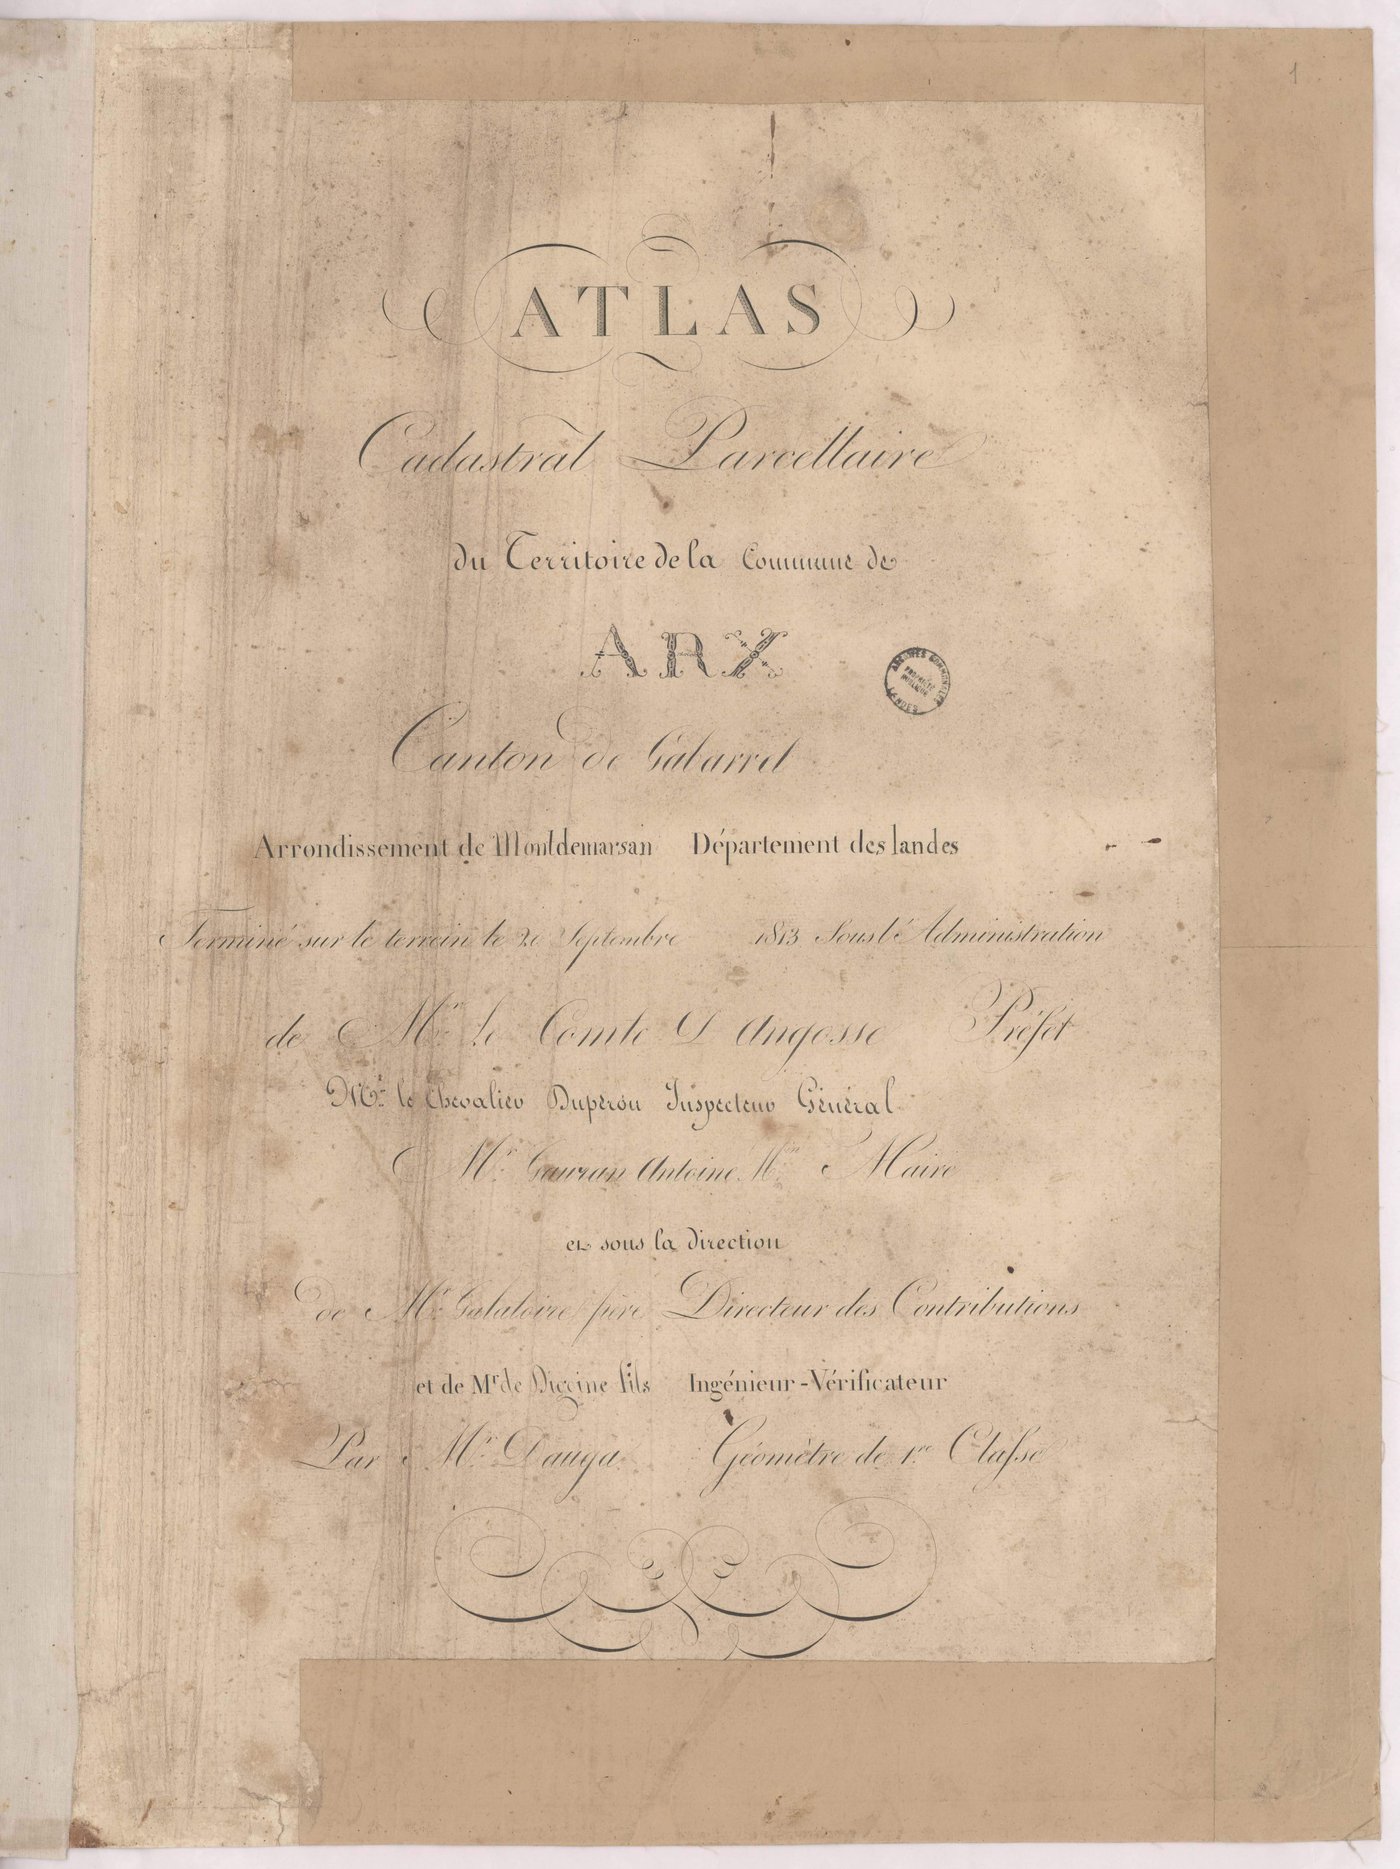 1
ATLAS
Cadastral Parcellaire
du Territoire de la Commune de
ARX
ARCHIVES COMMUNALES
PROPRIÉTÉ
PUBLIQUE
LANDES
Canton de Gabarret
Arrondissement de Montdemarsan Département des landes
Terminé sur le terrein le 20 Septembre 1813 Sous l'Administration
de Mr. le Comte D'Angosse Préfet
Mr. le Chevalier Dupérou Inspecteur Général
Mr. Antoine Maire
et sous la direction
de Mr. Galatoire père Directeur des Contributions
et de Mr. de fils Ingénieur-Vérificateur
Par Mr. Dauga Géomètre de 1re Classe